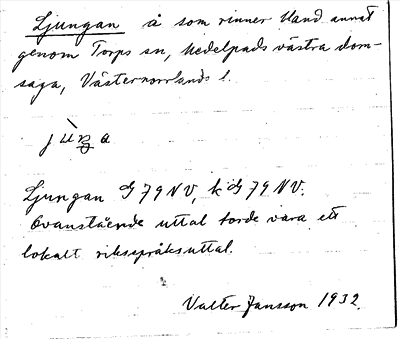 Ljungan å som rinner bland annat
genom Torps sn, Medelpads västra dom-
saga, Västernorrlands l.
jùŋa
Ljungan G 79 NV, k G 79 NV.
Ovanstående uttal torde vara ett
lokalt riksspråksuttal.
Valter Jansson 1932.